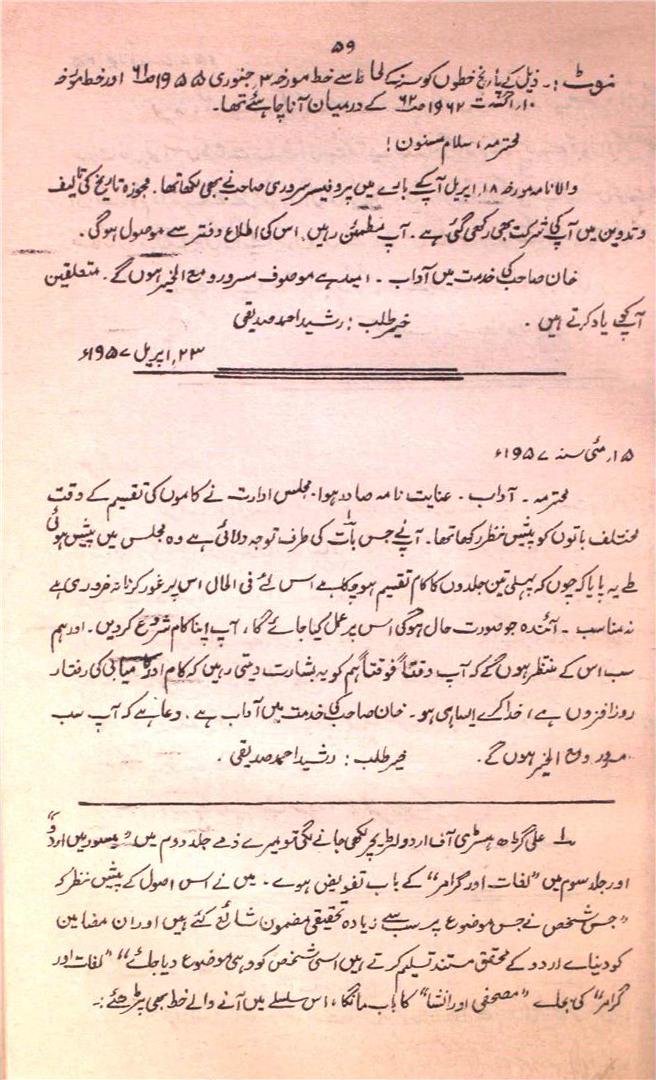 ۵۹
نوٹ :۔ ذیل کے پانچ خطوں کو سنہ کے لحاظ سے خط مورخہ ۳؍ جنوری ۱۹۵۵ء ص ۶۱ اور خط مورخہ
۱۰؍ اگست ۱۹۶۲ء ص ۶۲ کے درمیان آنا چاہئے تھا۔
محترمہ، سلام مسنون !
والا نامہ مورخہ ۱۸؍ اپریل آپ کے بارے میں پروفیسر سروری صاحب نے بھی لکھا تھا۔ مجوزہ تاریخ کی تالیف
و تدوین میں آپ کی شرکت بھی رکھی گئی ہے۔ آپ مطمئن رہیں، اس کی اطلاع دفتر سے موصول ہوگی۔
خان صاحب کی خدمت میں آداب ۔ امید ہے موصوف مسرور و مع الخیر ہوں گے۔ متعلقین
آپ کو یاد کرتے ہیں ۔ خیر طلب : رشید احمد صدیقی
۲۳؍ اپریل ۱۹۵۷ء
۱۵؍ مئی سنہ ۱۹۵۷ء
محترمہ ۔ آداب ۔ عنایت نامہ صادر ہوا۔ مجلس ادارت نے کاموں کی تقسیم کے وقت
مختلف باتوں کو پیش نظر رکھا تھا۔ آپ نے جس بات کی طرف توجہ دلائی ہے وہ مجلس میں پیش ہوئی
طے یہ پایا کہ چوں کہ پہلی تین جلدوں کا کام تقسیم ہو چکا ہے اس لئے فی الحال اس پر غور کرنا نہ ضروری ہے
نہ مناسب ۔ آئندہ جو صورت حال ہوگی اس پر عمل کیا جائے گا، آپ اپنا کام شروع کردیں۔ اور ہم
سب اس کے منتظر ہوں گے کہ آپ وقتاً فوقتاً ہم کو یہ بشارت دیتی رہیں کہ کام اور کامیابی کی رفتار
روز افزوں ہے، خدا کرے ایسا ہی ہو۔ خان صاحب کی خدمت میں آداب ہے، دعا ہے کہ آپ سب
مسرور و مع الخیر ہوں گے۔ خیر طلب : رشید احمد صدیقی ۔
۱؎ علی گڑھ ہسٹری آف اردو لٹریچر لکھی جانے لگی تو میرے ذمے جلد دوم میں "میسور میں اردو"
اور جلد سوم میں "لغات اور گرامر" کے باب تفویض ہوے ۔ میں نے اس اصول کے پیش نظر کہ
"جس شخص نے جس موضوع پر سب سے زیادہ تحقیقی مضمون شائع کئے ہیں اور ان مضامین
کو دنیاے اردو کے محقق مستند تسلیم کرتے ہیں اسی شخص کو وہی موضوع دیا جائے" "لغات اور
گرامر" کی بجاے "مصحفی اور انشا" کا باب مانگا، اس سلسلے میں آنے والے خط بھی پڑھئے :۔